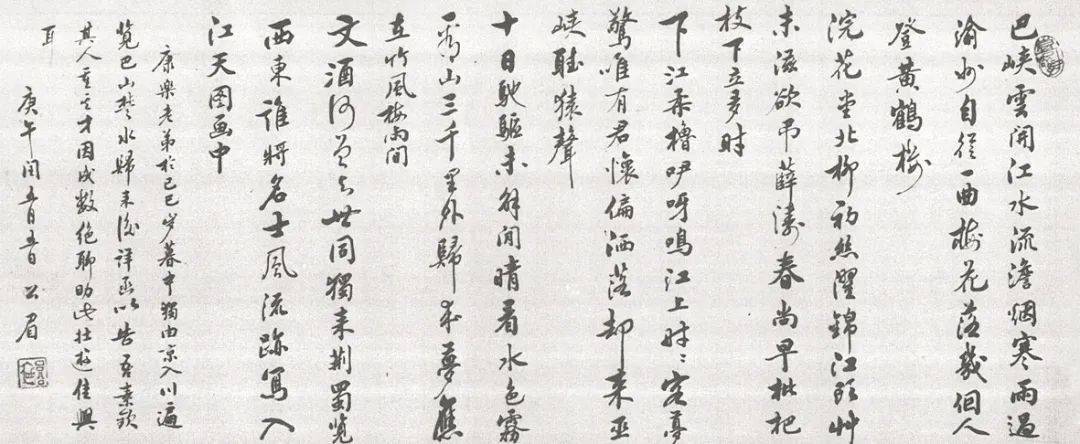 巴峽雲開江水流澹烟寒雨過
渝州自從一曲梅花落幾個人
登黃鶴樓
浣花堂北柳初絲濯錦江頭艸
未滋欲弔薛濤春尚早枇杷
枝下立多時
下江柔櫓咿呀鳴江上時〻客夢
驚唯有君懷偏洒落却來巫
峽聽猿聲
十日馳驅未解閒晴看水色霧
看山三千里外歸來夢應
在竹風梅雨間
文酒何曾與世同獨來荊蜀覽
西東誰將名士風流跡寫入
江天圖画中
康樂老弟於己巳歲暮中獨由京入川遍
覽巴山楚水歸來後詳函以告吾素欽
其人重其才因成數絕聊助此壯遊佳興
耳
庚午閏五月五日 公眉